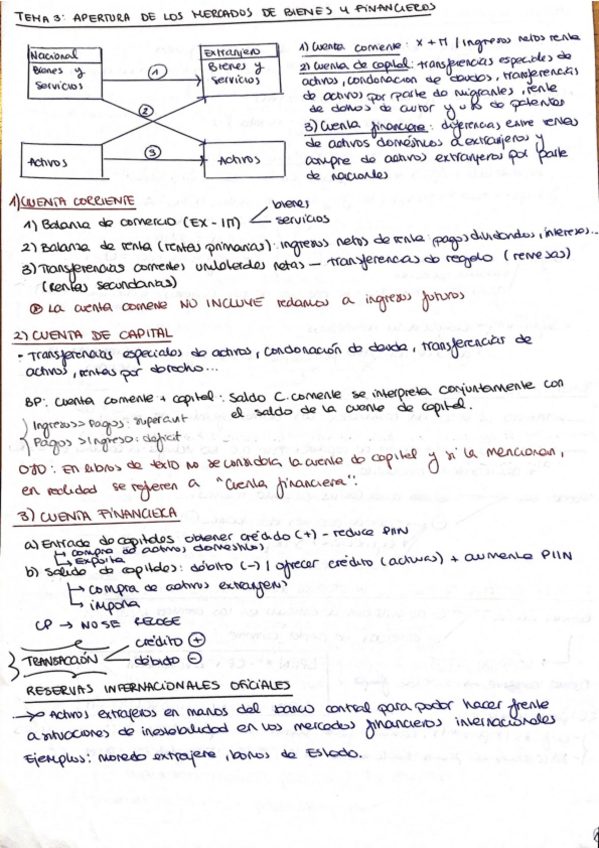 TEMA 3: APERTURA DE LOS MERCADOS DE BIENES Y FINANCIEROS
Nacional
Bienes y
servicios
1
Extranjero
Bienes y
servicios
2
Activos
3
Activos
1) Cuenta corriente: X + M / Ingresos netos renta
2) Cuenta de capital: transferencias especiales de
activos, condonacion de deudas, transferencias
de activos por parte de migrantes, renta
de datos de autor y uso de patentes
3) Cuenta financiera: diferencias entre ventas
de activos domésticos a extranjeros y
compra de activos extranjeros por parte
de nacionales
1) CUENTA CORRIENTE
1) Balanza de comercio (EX - IM)
bienes
servicios
2) Balanza de renta (rentas primarias): ingresos netos de renta: pagos dividendos, intereses...
3) Transferencias corrientes unilaterales netas — transferencias de regalo (remesas)
(Rentas secundarias)
La cuenta corriente NO INCLUYE reclamos a ingresos futuros
2) CUENTA DE CAPITAL
- Transferencias especiales de activos, condonación de deuda, transferencias de
activos, rentas por derecho...
BP: Cuenta corriente + capital: Saldo C. corriente se interpreta conjuntamente con
el saldo de la cuenta de capital.
Ingresos > Pagos: superavit
Pagos > Ingreso: deficit
OJO: En libros de texto no se considera la cuenta de capital y si la mencionan,
en realidad se refieren a "Cuenta financiera".
3) CUENTA FINANCIERA
a) Entrada de capitales obtener crédito (+) - reduce PIIN
compra de activos domésticos
Exporta
b) Salida de capitales: débito (-) | ofrecer crédito (activos) + aumenta PIIN
compra de activos extranjeros
importa
CP → NO SE RECOGE
TRANSACCIÓN
crédito +
débito -
RESERVAS INTERNACIONALES OFICIALES
→ Activos extrajeros en manos del banco central para poder hacer frente
a situaciones de inestabilidad en los mercados financieros internacionales
Ejemplos: moneda extrajera, bonos de Estado.